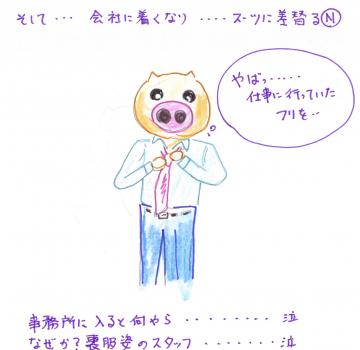 そして… 会社に着くなり ‥‥スーツに差替るⓃ
やばっ……
仕事に行っていた
フリを…
事務所に入ると何やら ‥‥‥‥‥ 泣
なぜか?喪服姿のスタッフ ‥‥‥‥ 泣